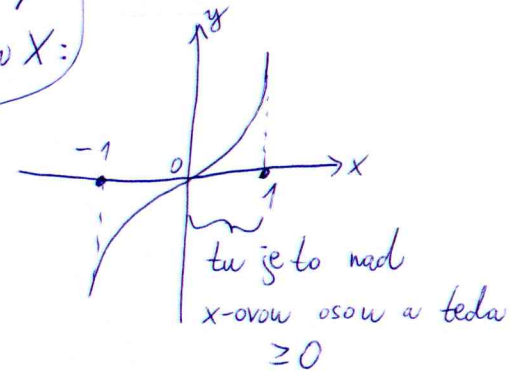 X:
y
-1
0
x
1
tu je to nad
x-ovou osou a teda
≥ 0